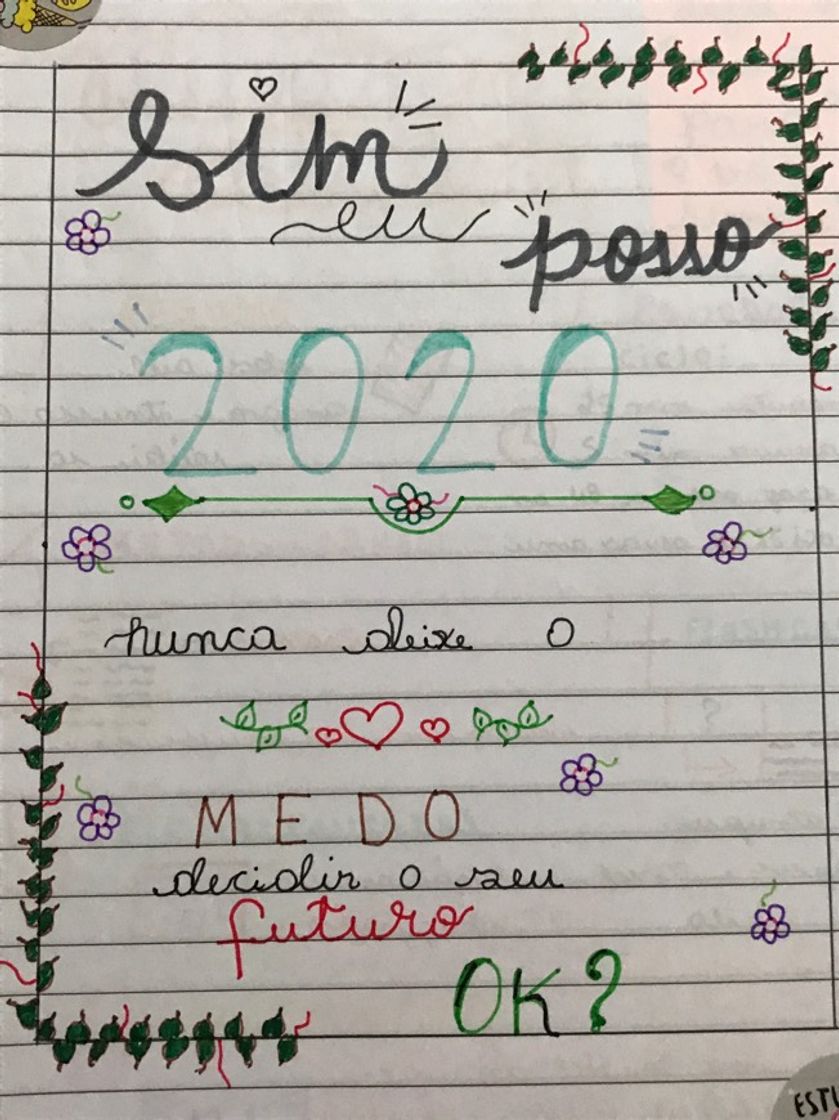 sim
eu
posso
2020
nunca deixe o
MEDO
decidir o seu
futuro
OK?